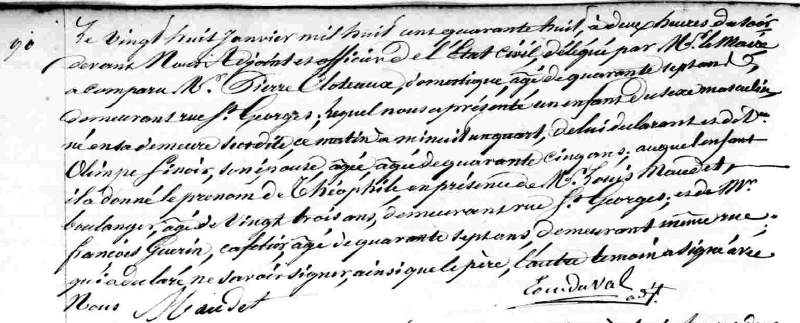 90 Le vingt huit Janvier mil huit cent quarante huit, à deux heures du soir
devant Nous Adjoint et officier de l'Etat Civil délégué par Mr. le Maire
a comparu Mr. Pierre Cloteaux, domestique, âgé de quarante sept ans
demeurant rue St. Georges; lequel nous a présenté un enfant du sexe masculin
né en sa demeure susdite, ce matin à minuit un quart, de lui déclarant et de De.
Olimpe Finois, son épouse, agée, agée de quarante cinq ans, auquel enfant
il a donné le prenom de Théophile en présence de Mr. Louis Maudet,
boulanger, âgé de vingt trois ans, demeurant rue St. Georges; et de Mr.
françois Guerin, cafetier, âgé de quarante sept ans, demeurant même rue;
qui a déclaré ne savoir signer, ainsi que le père, l'autre temoin a signé avec
Nous Maudet